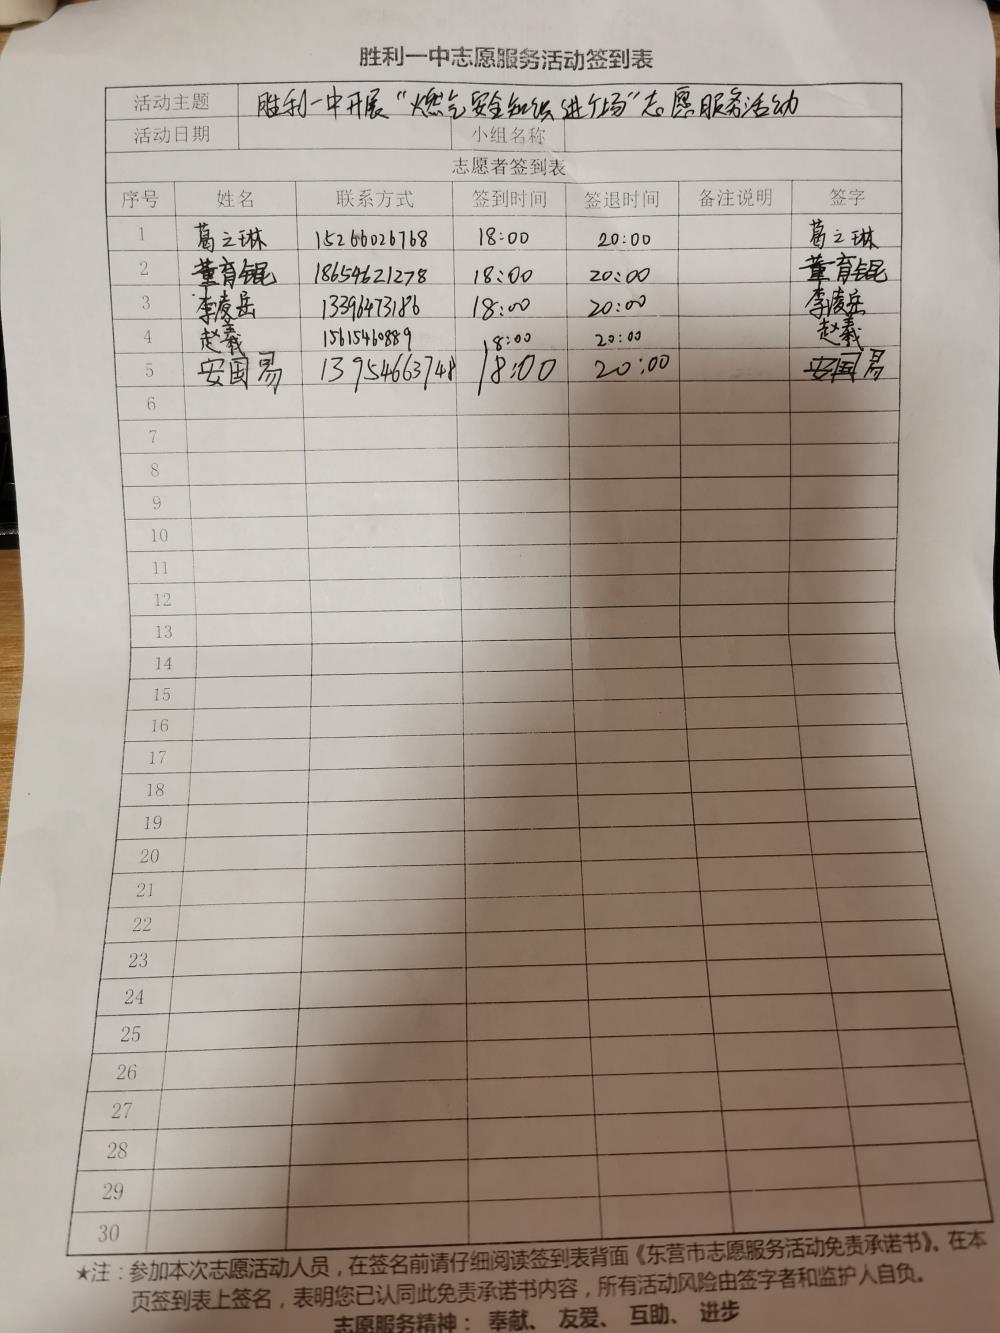 胜利一中志愿服务活动签到表
活动主题 胜利一中开展“燃气安全知识进广场”志愿服务活动
活动日期 小组名称
志愿者签到表
序号 姓名 联系方式 签到时间 签退时间 备注说明 签字
1 葛立琳 15266026768 18:00 20:00 葛立琳
2 董育锟 18654621278 18:00 20:00 董育锟
3 李凌岳 13396473186 18:00 20:00 李凌岳
4 赵羲 15615460889 18:00 20:00 赵羲
5 安国易 13954663748 18:00 20:00 安国易
6
7
8
9
10
11
12
13
14
15
16
17
18
19
20
21
22
23
24
25
26
27
28
29
30
★注：参加本次志愿活动人员，在签名前请仔细阅读签到表背面《东营市志愿服务活动免责承诺书》。在本
页签到表上签名，表明您已认同此免责承诺书内容，所有活动风险由签字者和监护人自负。
志愿服务精神：奉献、友爱、互助、进步